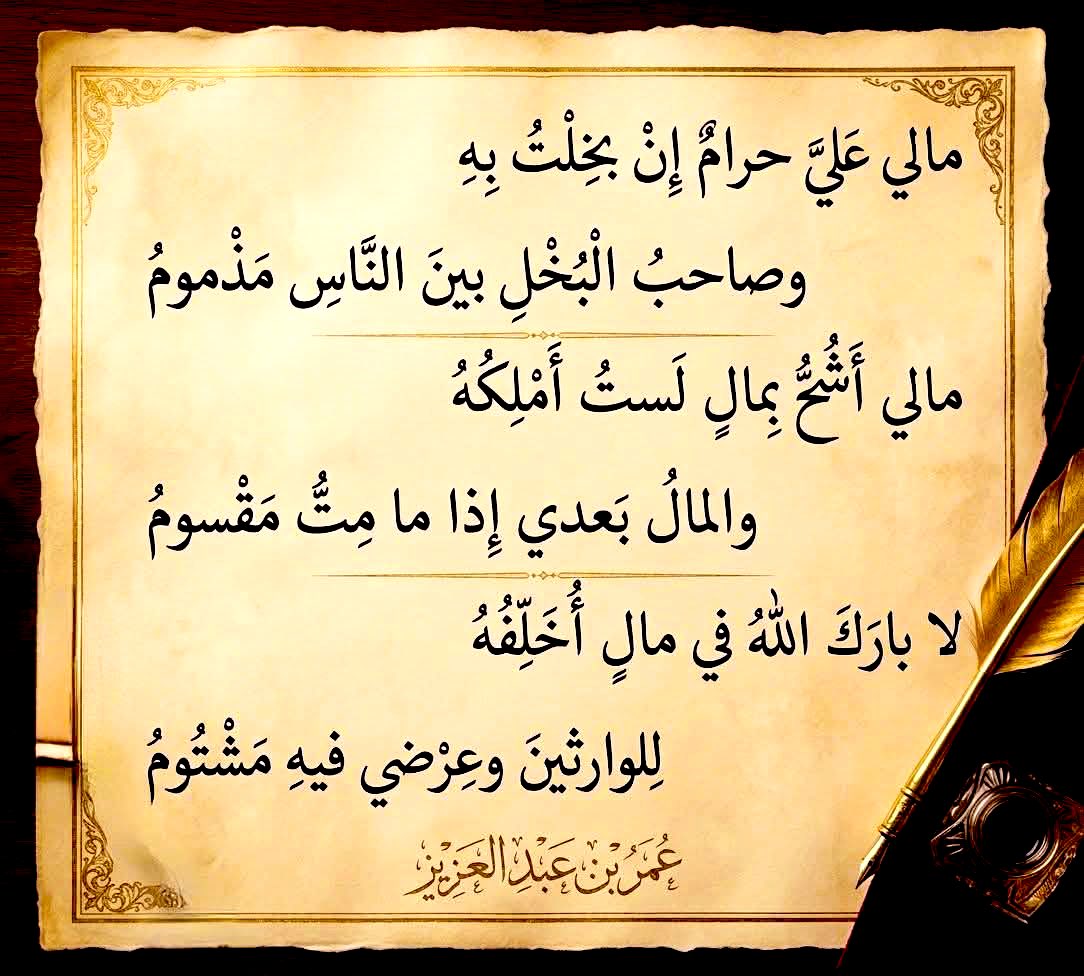 مالي عَليَّ حرامٌ إِنْ بخِلْتُ بِهِ
وصاحبُ الْبُخْلِ بينَ النَّاسِ مَذْمومُ
مالي أَشُحُّ بِمالٍ لَستُ أَمْلِكُهُ
والمالُ بَعدي إِذا ما مِتُّ مَقْسومُ
لا بارَكَ اللهُ في مالٍ أُخَلِّفُهُ
لِلوارثينَ وعِرْضي فيهِ مَشْتُومُ
عُمَرُ بْن عَبْدِ العَزِيْزِ